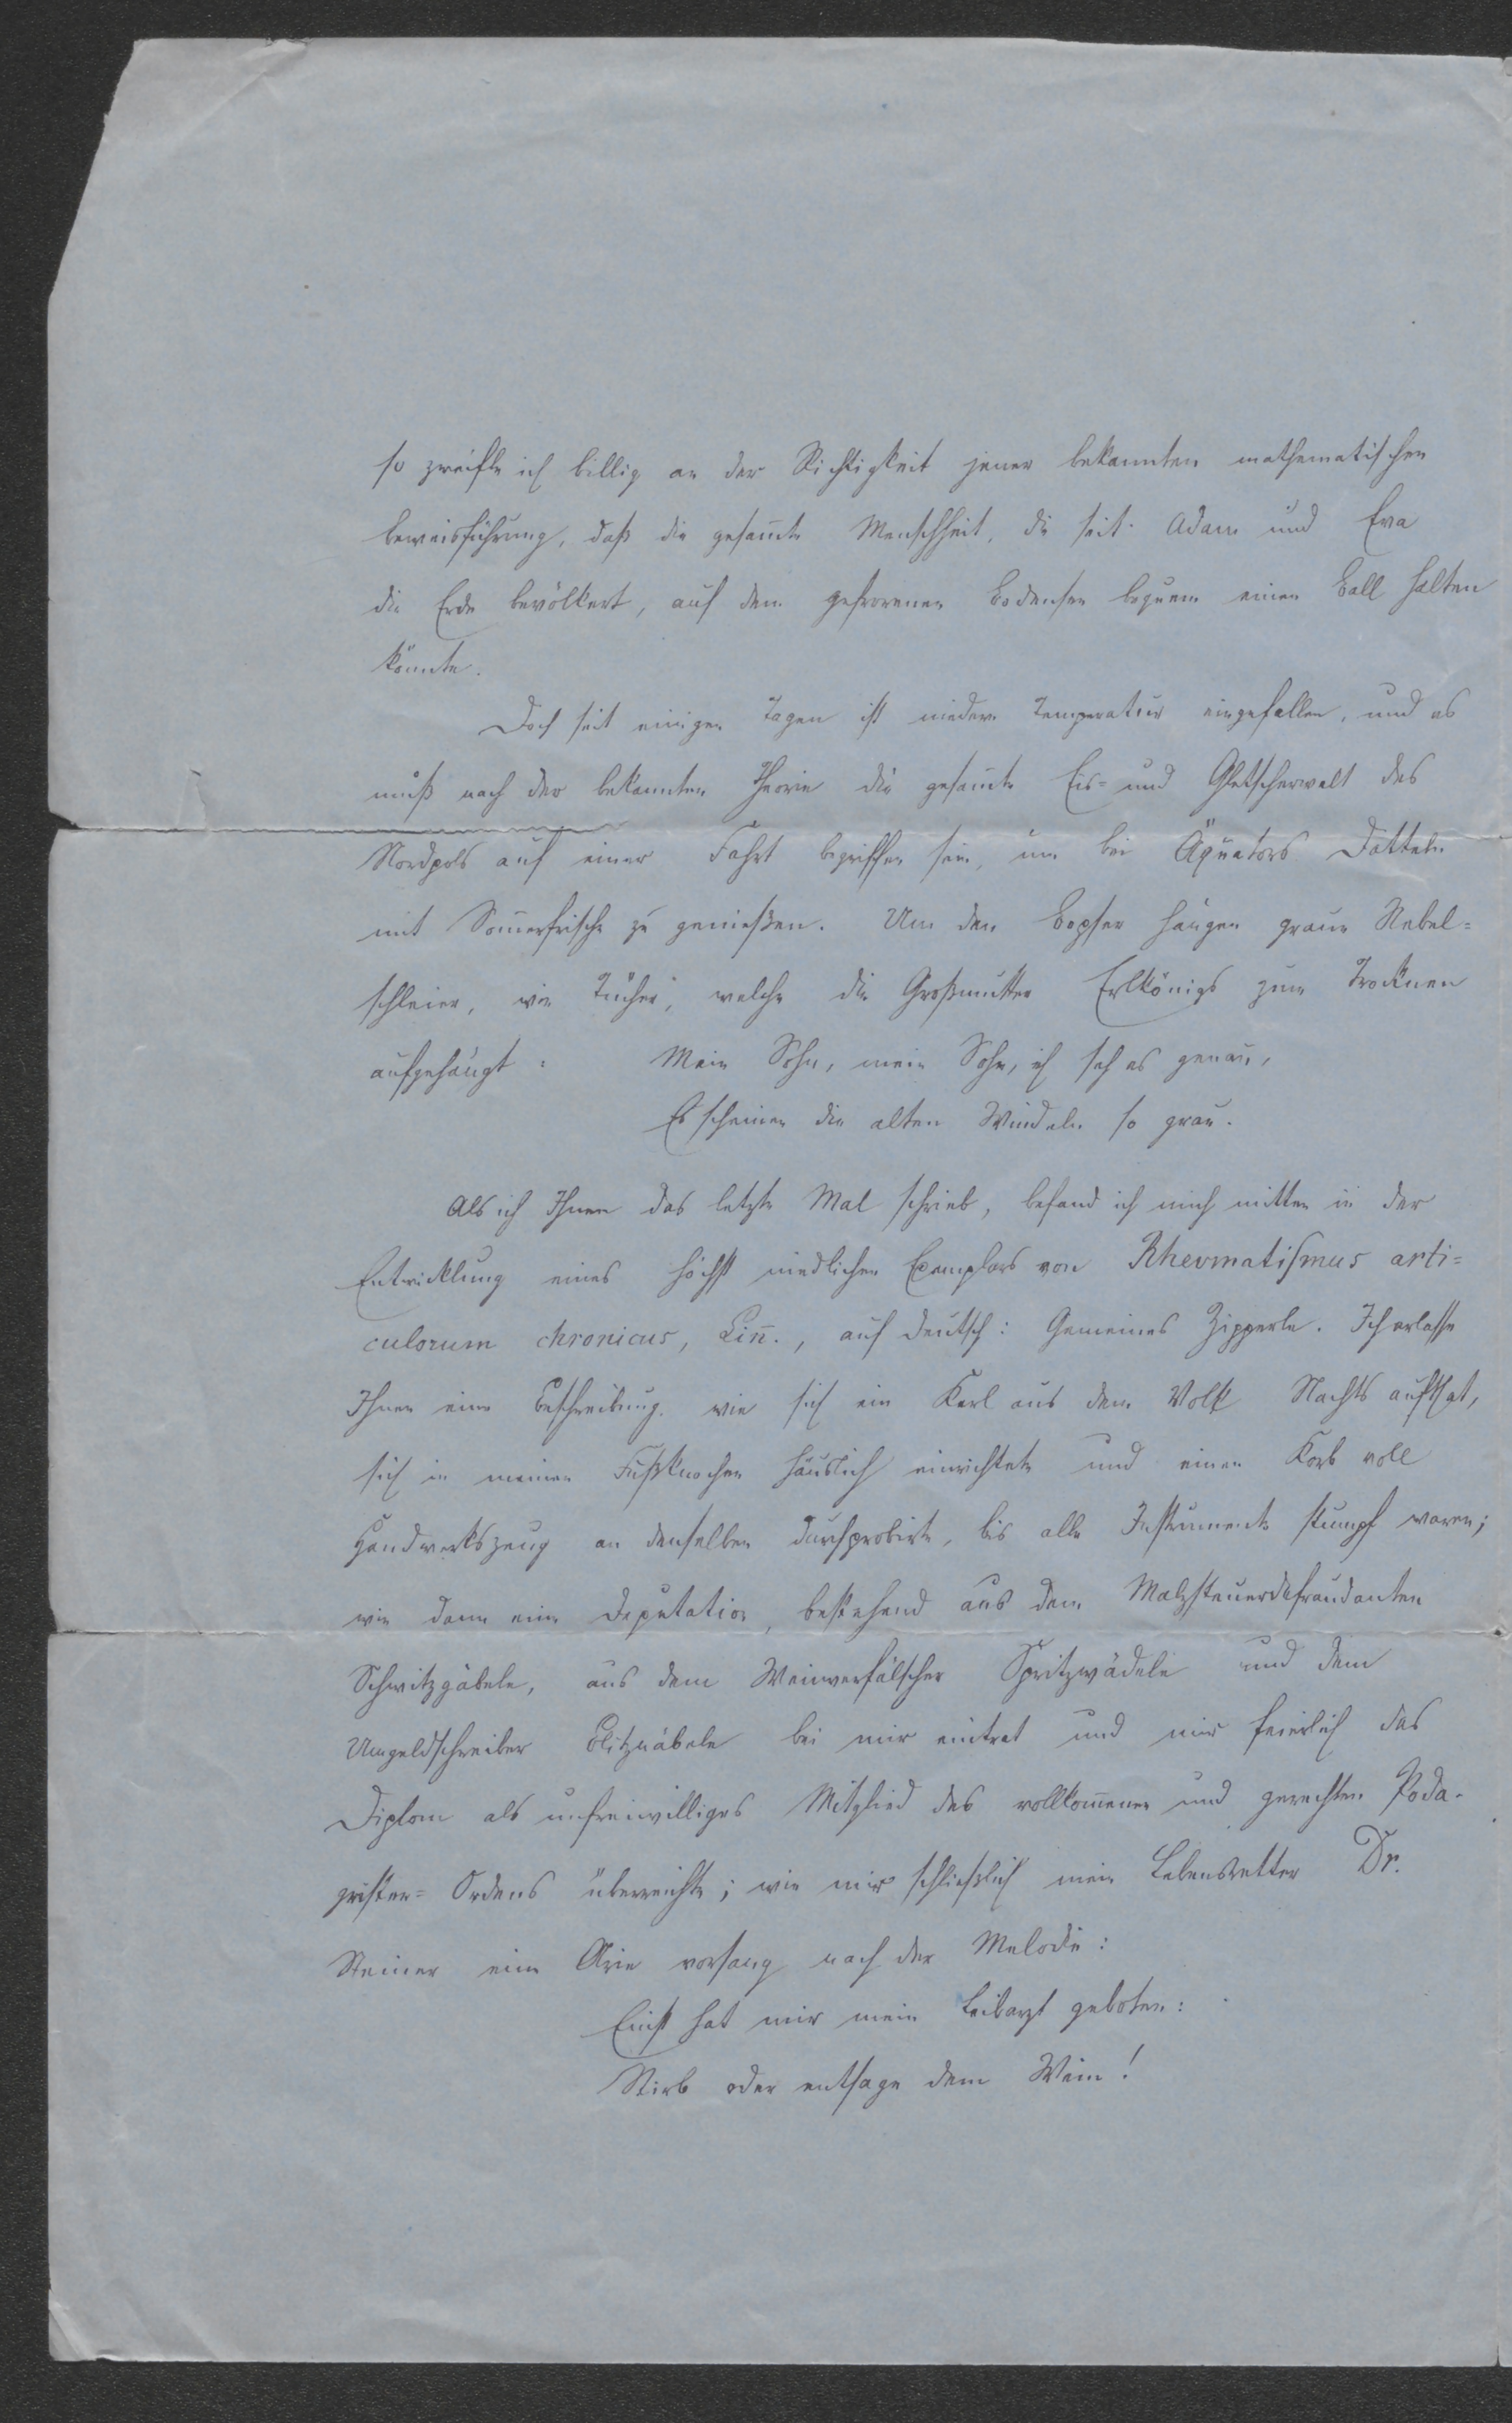 so zweifle ich billig an der Richtigkeit jener bekannten mathematischen
Beweisführung, daß die gesam̄te Menschheit, die seit Adam und Eva
die Erde bevölkert, auf dem gefrorenen Bodensee bequem einen Ball halten
könnte.
Doch seit einigen Tagen ist niedere Temperatur eingefallen, und es
muß nach der bekannten Theorie die gesam̄te Eis= und Gletscherwelt des
Nordpols auf einer Fahrt begriffen sein, um bei Äquators Datteln
mit Som̄erfrische zu genießen. Um den Bopser hängen graue Nebel=
schleier, wie Tücher, welche die Großmutter Erlkönigs zum Trocknen
aufgehängt: Mein Sohn, mein Sohn, ich seh es genau,
Es scheinen die alten Windeln so grau.
Als ich Ihnen das letzte Mal schrieb, befand ich mich mitten in der
Entwicklung eines höchst niedlichen Exemplars von Rhevmatismus arti=
culorum chronicus, Lin̄., auf deutsch: Gemeines Zipperle. Ich erlasse
Ihnen eine Beschreibung, wie sich ein Kerl aus dem Volk Nachts aufthat,
sich in meinen Fußknochen häuslich einrichtete und einen Korb voll
Handwerkszeug an denselben durchprobirte, bis alle Instrumente stumpf waren;
wie dann eine Deputation, bestehend aus dem Malzsteuerdefraudanten
Schwitzgäbele, aus dem Weinverfälscher Spritzwädele und dem
Umgeldschreiber Blitznäbele bei mir eintrat und mir feierlich das
Diplom als unfreiwilliges Mitglied des vollkom̄enen und gerechten Poda-
gristen= Ordens überreichte; wie mir schließlich mein Lebensretter Dr.
Steiner eine Arie vorsang nach der Melodie:
Einst hat mir mein Leibarzt geboten:
Stirb oder entsage dem Wein!